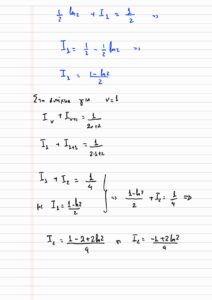 1/2 ln2 + I₁ = 1/2 ⇒
I₁ = 1/2 - 1/2 ln2 ⇒
I₁ = (1-ln2)/2
Στη συνέχεια για ν=1
I_ν + I_ν+1 = 1/(2ν+2)
I₁ + I₁₊₁ = 1/(2·1+2)
I₁ + I₂ = 1/4
με I₁ = (1-ln2)/2 } ⇒ (1-ln2)/2 + I₂ = 1/4 ⇒
I₂ = (1-2+2ln2)/4 ⇒ I₂ = (-1+2ln2)/4